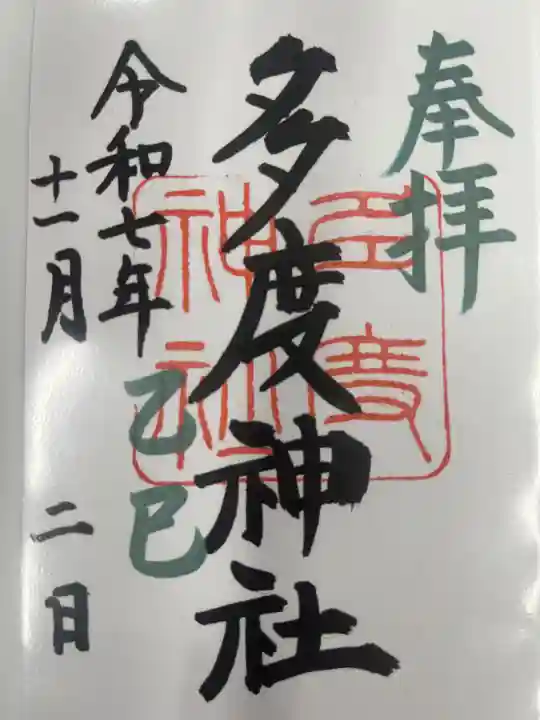 奉拝
多度神社
多度神社
令和七年
乙巳
十一月
二日